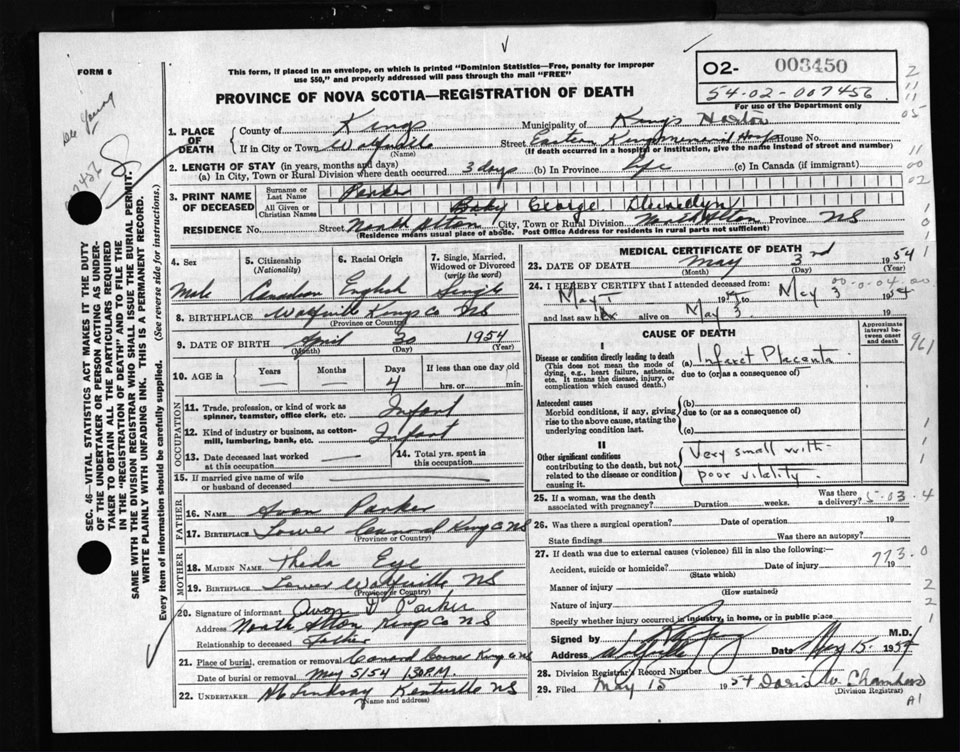 FORM 6
This form, if placed in an envelope, on which is printed "Dominion Statistics—Free, penalty for improper
use $50," and properly addressed will pass through the mail "FREE"
PROVINCE OF NOVA SCOTIA—REGISTRATION OF DEATH
O2- 003450
54-02-007456
For use of the Department only
1. PLACE OF DEATH County of Kings Municipality of Kings
If in City or Town Wolfville (Name) Street Eastern Kings Memorial Hosp House No.
(If death occurred in a hospital or institution, give the name instead of street and number)
2. LENGTH OF STAY (in years, months and days)
(a) In City, Town or Rural Division where death occurred 3 days (b) In Province Life (c) In Canada (if immigrant)
3. PRINT NAME OF DECEASED Surname or Last Name Parker
All Given or Christian Names Baby George Llewellyn
RESIDENCE No. Street North Alton City, Town or Rural Division North Alton Province NS
(Residence means usual place of abode. Post Office Address for residents in rural parts not sufficient)
SEC. 46—VITAL STATISTICS ACT MAKES IT THE DUTY
OF THE UNDERTAKER OR PERSON ACTING AS UNDER-
TAKER TO OBTAIN ALL THE PARTICULARS REQUIRED
IN THE "REGISTRATION OF DEATH" AND TO FILE THE
SAME WITH THE DIVISION REGISTRAR WHO SHALL ISSUE THE BURIAL PERMIT.
WRITE PLAINLY WITH UNFADING INK. THIS IS A PERMANENT RECORD.
Every item of information should be carefully supplied. (See reverse side for instructions.)
4. Sex
Male
5. Citizenship (Nationality)
Canadian
6. Racial Origin
English
7. Single, Married, Widowed or Divorced (write the word)
Single
8. BIRTHPLACE Wolfville Kings Co NS
(Province or Country)
9. DATE OF BIRTH April 30 1954
(Month) (Day) (Year)
10. AGE in Years Months Days If less than one day old
4 hrs. or min.
OCCUPATION
11. Trade, profession, or kind of work as
spinner, teamster, office clerk, etc. Infant
12. Kind of industry or business, as cotton-
mill, lumbering, bank, etc. Infant
13. Date deceased last worked
at this occupation
14. Total yrs. spent in
this occupation
15. If married give name of wife
or husband of deceased
FATHER
16. NAME Avon Parker
17. BIRTHPLACE Lower Canard Kings Co NS
(Province or Country)
MOTHER
18. MAIDEN NAME Theda Eye
19. BIRTHPLACE Lower Wolfville NS
(Province or Country)
20. Signature of informant Avon D Parker
Address North Alton Kings Co NS
Relationship to deceased Father
21. Place of burial, cremation or removal Canard Corner Kings Co NS
Date of burial or removal May 5/54 1.30 P.M.
22. UNDERTAKER Lindsay Kentville NS
(Name and address)
MEDICAL CERTIFICATE OF DEATH
23. DATE OF DEATH May 3rd 1954
(Month) (Day) (Year)
24. I HEREBY CERTIFY that I attended deceased from:
May 1 1954 to May 3 1954
and last saw h alive on May 3 19
CAUSE OF DEATH
Approximate interval between onset and death
I
Disease or condition directly leading to death
(This does not mean the mode of
dying, e.g., heart failure, asthenia,
etc. It means the disease, injury, or
complication which caused death.)
(a) Infarct Placenta
due to (or as a consequence of)
Antecedent causes
Morbid conditions, if any, giving
rise to the above cause, stating the
underlying condition last.
(b)
due to (or as a consequence of)
(c)
II
Other significant conditions
contributing to the death, but not
related to the disease or condition
causing it.
Very small with
poor vitality.
25. If a woman, was the death
associated with pregnancy? Duration weeks. Was there a delivery?
5.03.4
26. Was there a surgical operation? Date of operation 19
State findings Was there an autopsy?
27. If death was due to external causes (violence) fill in also the following:
773.0
Accident, suicide or homicide? (State which) Date of injury 19
Manner of injury
(How sustained)
Nature of injury
Specify whether injury occurred in industry, in home, or in public place
Signed by M.D.
Address Wolfville Date May 15 1954
28. Division Registrar's Record Number
29. Filed May 15 1954 Doris W. Chambers
(Division Registrar)
A1